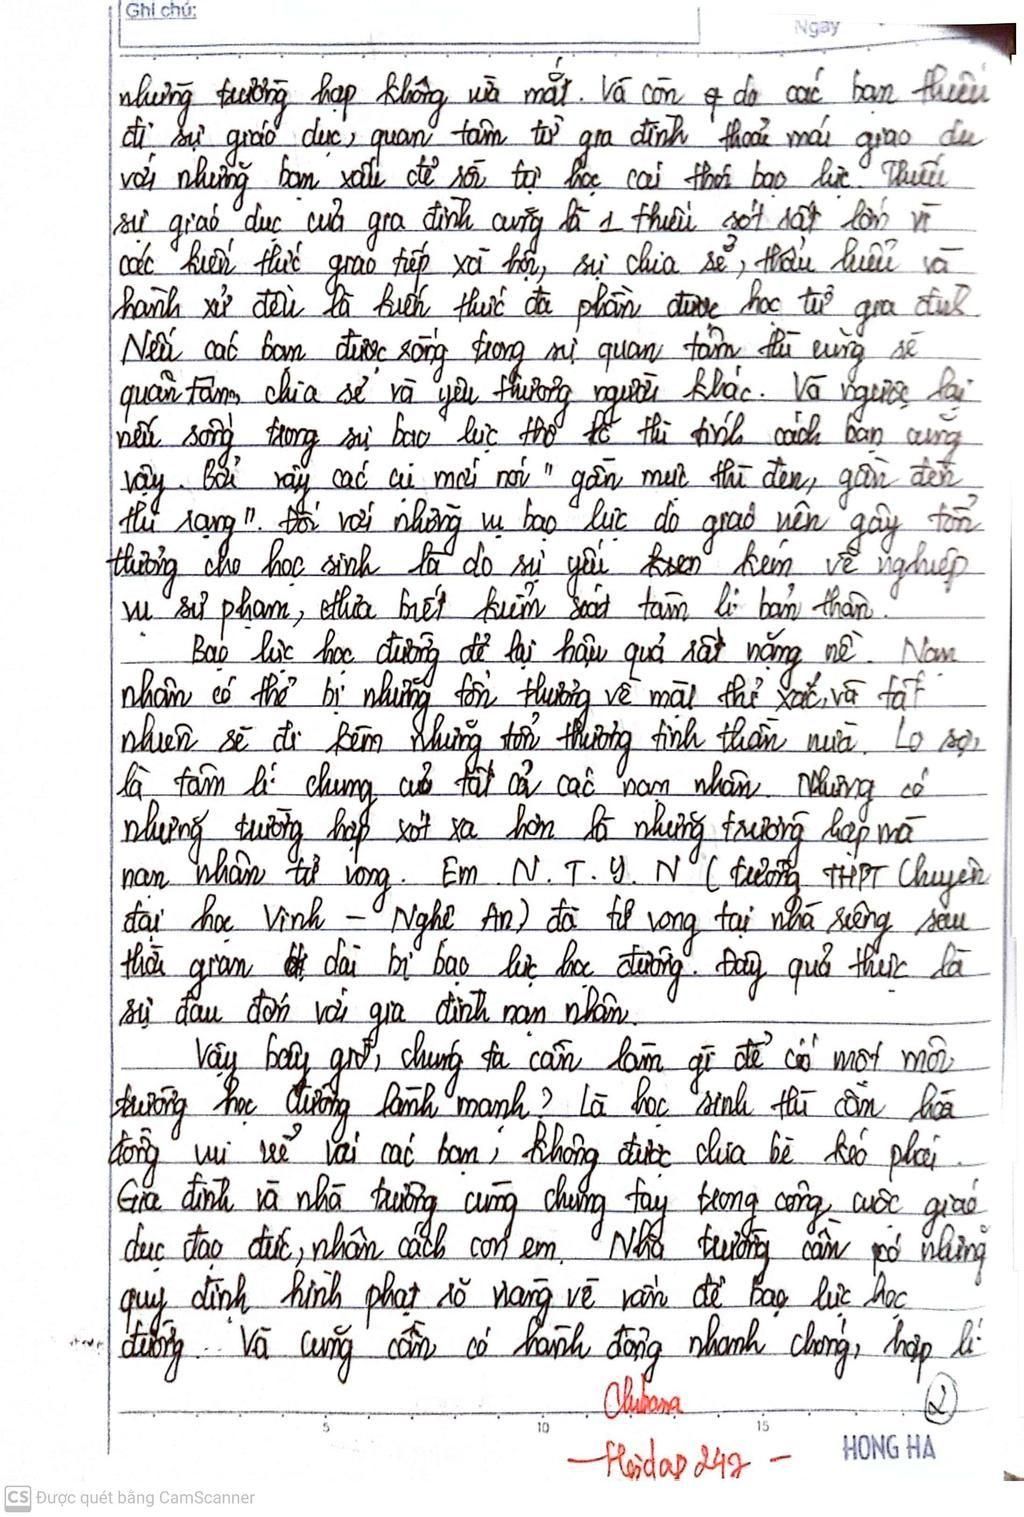 Ghi chú:
Ngày
những trường hợp không vừa mắt. Và còn do các bạn thiếu
đi sự giáo dục, quan tâm từ gia đình thoải mái giao du
với những bạn xấu để rồi tự học cái thói bạo lực. Thiếu
sự giáo dục của gia đình cũng là 1 thiếu sót rất lớn vì
các kiến thức giao tiếp xã hội, sự chia sẻ, thấu hiểu và
hành xử đều là kiến thức đa phần được học từ gia đình.
Nếu các bạn được sống trong sự quan tâm thì cũng sẽ
quan tâm, chia sẻ và yêu thương người khác. Và ngược lại
nếu sống trong sự bạo lực thì tính cách bạn cũng
vậy. Bởi vậy các cụ mới nói "gần mực thì đen, gần đèn
thì sạng". Đối với những vụ bạo lực do giáo viên gây tổn
thương cho học sinh là do sự yếu kém về nghiệp
vụ sư phạm, chưa biết kiểm soát tâm lí bản thân.
Bạo lực học đường để lại hậu quả rất nặng nề. Nạn
nhân có thể bị những tổn thương về mặt thể xác, và tất
nhiên sẽ đi kèm những tổn thương tinh thần nữa. Lo sợ,
là tâm lí chung của tất cả các nạn nhân. Nhưng có
những trường hợp xót xa hơn là những trường hợp mà
nạn nhân tử vong. Em N. T. Y. N (trường THPT Chuyên
đại học Vinh - Nghệ An) đã tử vong tại nhà riêng sau
thời gian dài bị bạo lực học đường. Đây quả thực là
sự đau đớn với gia đình nạn nhân.
Vậy bây giờ, chúng ta cần làm gì để có một môi
trường học đường lành mạnh? Là học sinh thì cần hòa
đồng vui vẻ với các bạn, không được chia bè kéo phái.
Gia đình và nhà trường cùng chung tay trong công cuộc giáo
dục đạo đức, nhân cách con em. Nhà trường cần có những
quy định hình phạt rõ ràng về vấn đề bạo lực học
đường... Và cũng cần có hành động nhanh chóng, hợp lí
2
5 10 15
HONG HA
- Hoidap247 -
CS Được quét bằng CamScanner